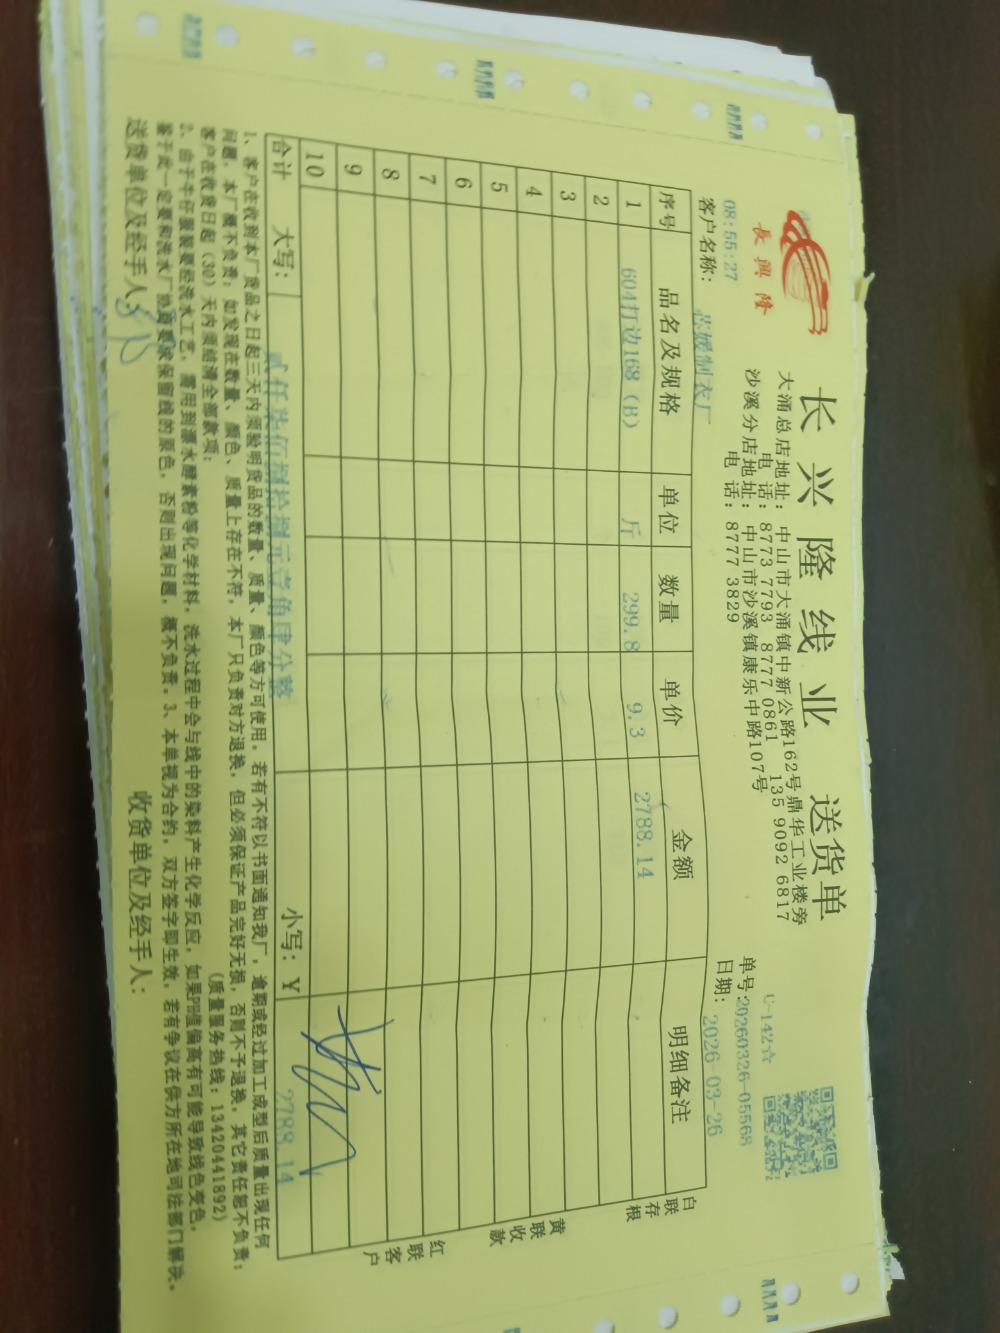 長興隆
长兴隆线业 送货单
大涌总店地址：中山市大涌镇中新公路162号鼎华工业楼旁
电 话：8773 7793 8777 0861 135 9092 6817
沙溪分店地址：中山市沙溪镇康乐中路107号
电 话：8777 3829
U-142☆
单号:20260326-05568
08:55:27
日期：2026-03-26
客户名称：芯媛制衣厂
序号 品名及规格 单位 数量 单价 金额 明细备注
1 604打边168 (B) 斤 299.8 9.3 2788.14
2
3
4
5
6
7
8
9
10
合计 大写：贰仟柒佰捌拾捌元壹角肆分整 小写：￥ 2788.14
白联存根
黄联收款
红联客户
1、客户在收到本厂货品之日起三天内须验明货品的数量、质量、颜色等方可使用。若有不符以书面通知我厂，逾期或经过加工成型后质量出现任何
问题，本厂概不负责；如发现在数量、颜色、质量上存在不符，本厂只负责对方退换，但必须保证产品完好无损，否则不予退换，其它责任恕不负责；
客户在收货日起（30）天内须结清全部款项； （质量服务热线：13420441892）
2、由于牛仔服装要经洗水工艺，需用到漂水酵素粉等化学材料，洗水过程中会与线中的染料产生化学反应，如果PH值偏高有可能导致线色变色，
鉴于此一定要和洗水厂协商要求保留线的原色，否则出现问题，概不负责。3、本单视为合约，双方签字即生效，若有争议在供方所在地司法部门解决。
送货单位及经手人： 收货单位及经手人：